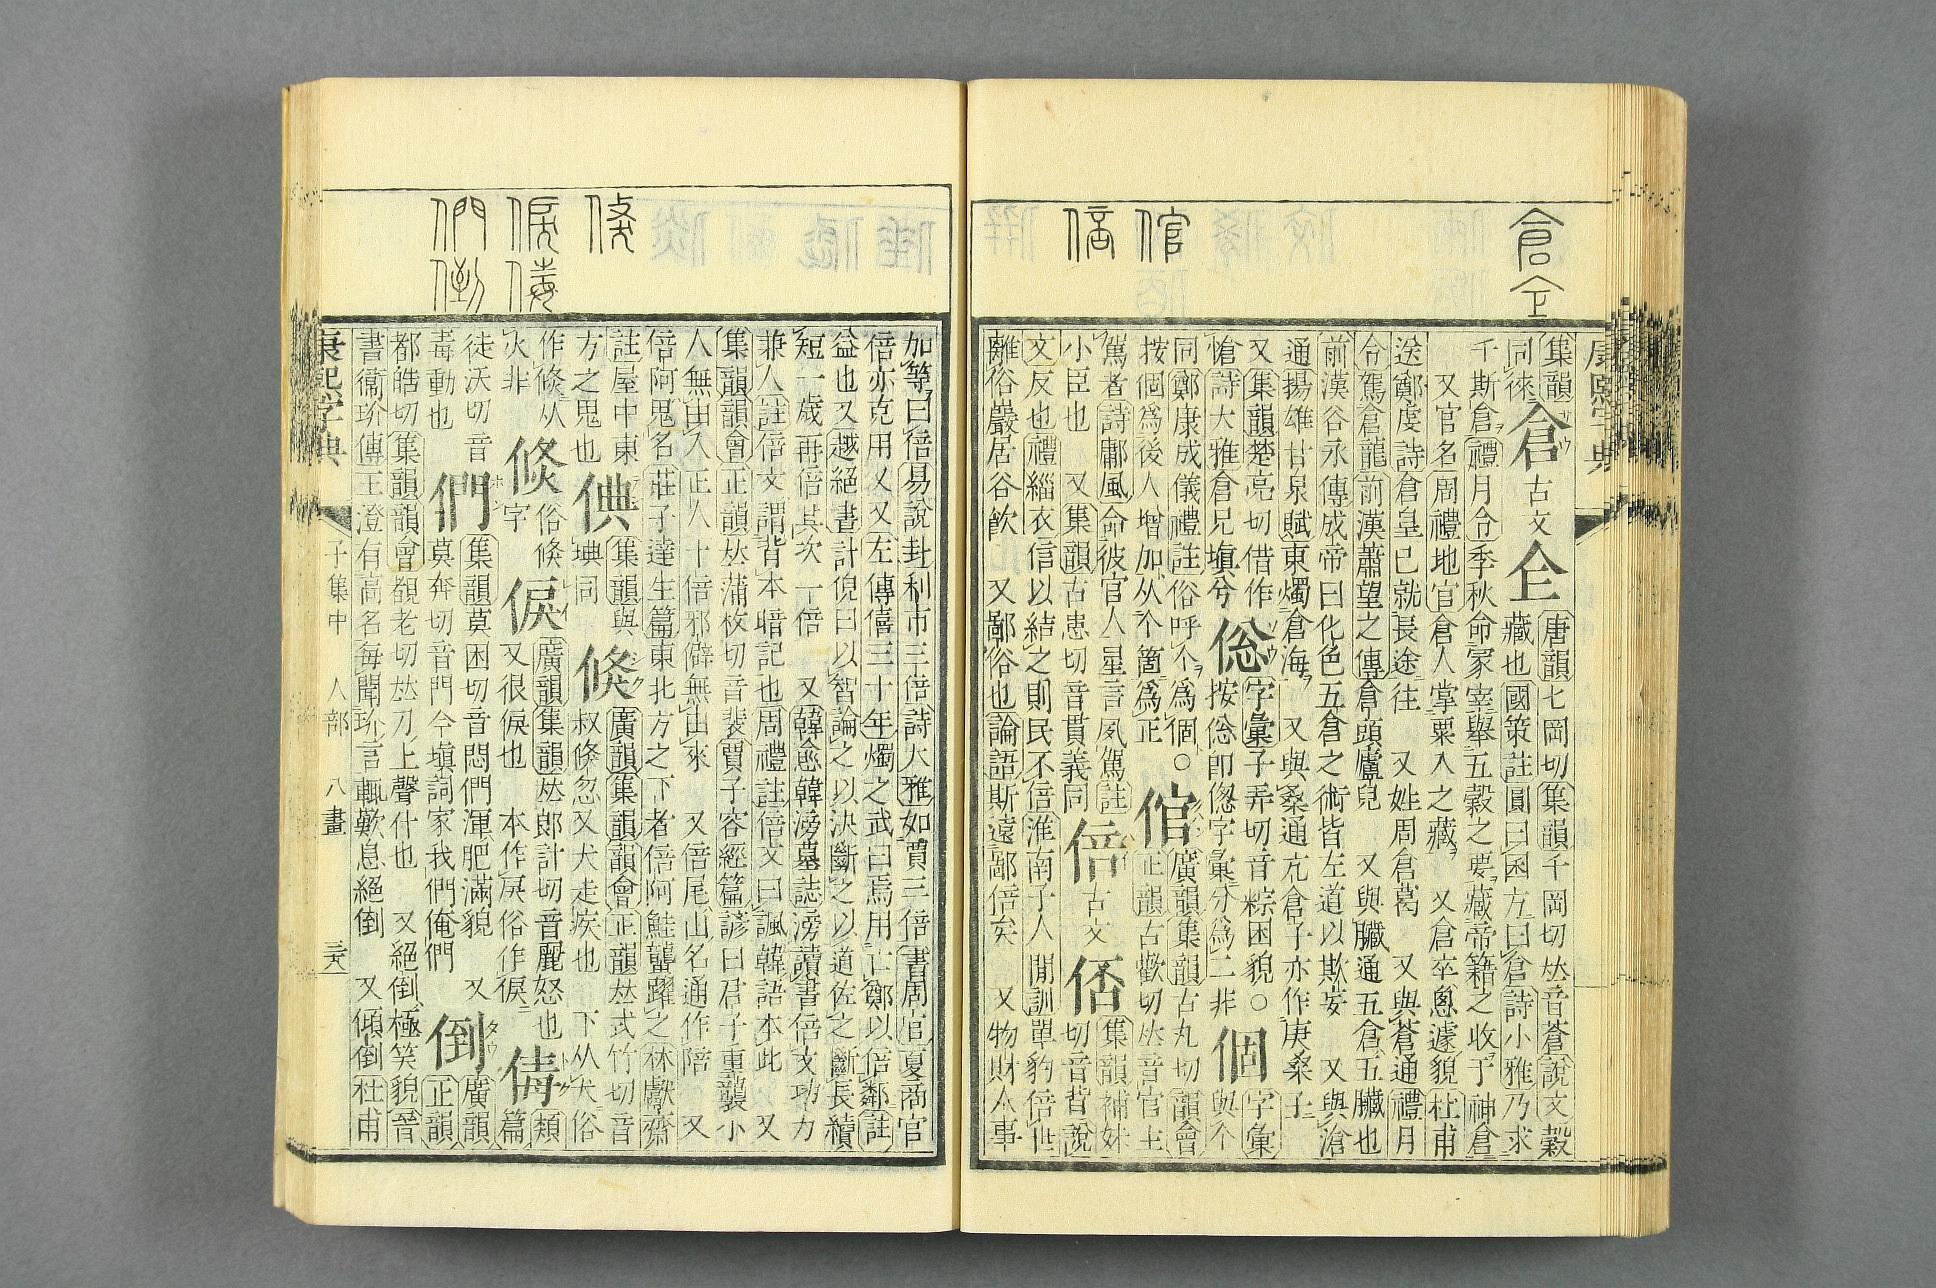 倉仝
倌
倍
集韻 倉古文仺 唐韻七岡切集韻千岡切𠀤音蒼說文穀
同倈 藏也國策註圓曰囷方曰倉詩小雅乃求
千斯倉禮月令季秋命冢宰舉五穀之要藏帝籍之收于神倉
又官名周禮地官倉人掌粟入之藏 又倉卒悤遽貌杜甫
送鄭虔詩倉皇已就長途往 又姓周倉葛 又與蒼通禮月
令駕倉龍前漢蕭望之傳倉頭廬兒 又與臟通五倉五臟也
前漢谷永傳成帝曰化色五倉之術皆左道以欺妄 又與滄
通揚雄甘泉賦東燭倉海 又與桑通亢倉子亦作庚桑子
又集韻楚亮切借作 偬 字彙子弄切音粽困貌○ 個 字彙
愴詩大雅倉兄塡兮 按偬卽傯字彙分爲二非 與个
同鄭康成儀禮註俗呼个爲個○ 倌 廣韻集韻古丸切韻會
按個爲後人增加从个箇爲正 正韻古歡切𠀤音官主
駕者詩鄘風命彼官人星言夙駕註 倍古文偝 集韻補妹
小臣也 又集韻古患切音貫義同 切音背說
文反也禮緇衣信以結之則民不倍淮南子人閒訓單豹倍世
離俗巖居谷飮 又鄙俗也論語斯遠鄙倍矣 又物財人事
倏
們倒
加等曰倍易說卦利市三倍詩大雅如賈三倍書周官夏商官
倍亦克用乂又左傳僖三十年燭之武曰焉用亡鄭以倍鄰註
益也又越絕書計倪曰以智論之以決斷之以道佐之斷長續
短一歲再倍其次一倍 又韓愈韓滂墓誌滂讀書倍文功力
兼人註倍文謂背本暗記也周禮註倍文曰諷韓語本此 又
集韻韻會正韻𠀤蒲枚切音裴賈子容經篇諺曰君子重襲小
人無由入正人十倍邪僻無由來 又倍尾山名通作陪 又
倍阿鬼名莊子達生篇東北方之下者倍阿鮭蠪躍之林獻齋
註屋中東 倎 集韻與 倏 廣韻集韻韻會正韻𠀤式竹切音
方之鬼也 同 叔倏忽又犬走疾也 下从犬俗
作倐从 倐 俗倏 㑦 廣韻集韻𠀤郎計切音麗怒也 類
火非 字 又很㑦也 本作戾俗作㑦 篇
徒沃切音 們 集韻莫困切音悶們渾肥滿貌 又 倒 廣韻
毒動也 莫奔切音門今塡詞家我們俺們 正韻
都皓切集韻韻會覩老切𠀤刀上聲仆也 又絕倒極笑貌晉
書衞玠傳王澄有高名每聞玠言輒歎息絕倒 又傾倒杜甫
康熙字典 子集中 人部 八畫 三六